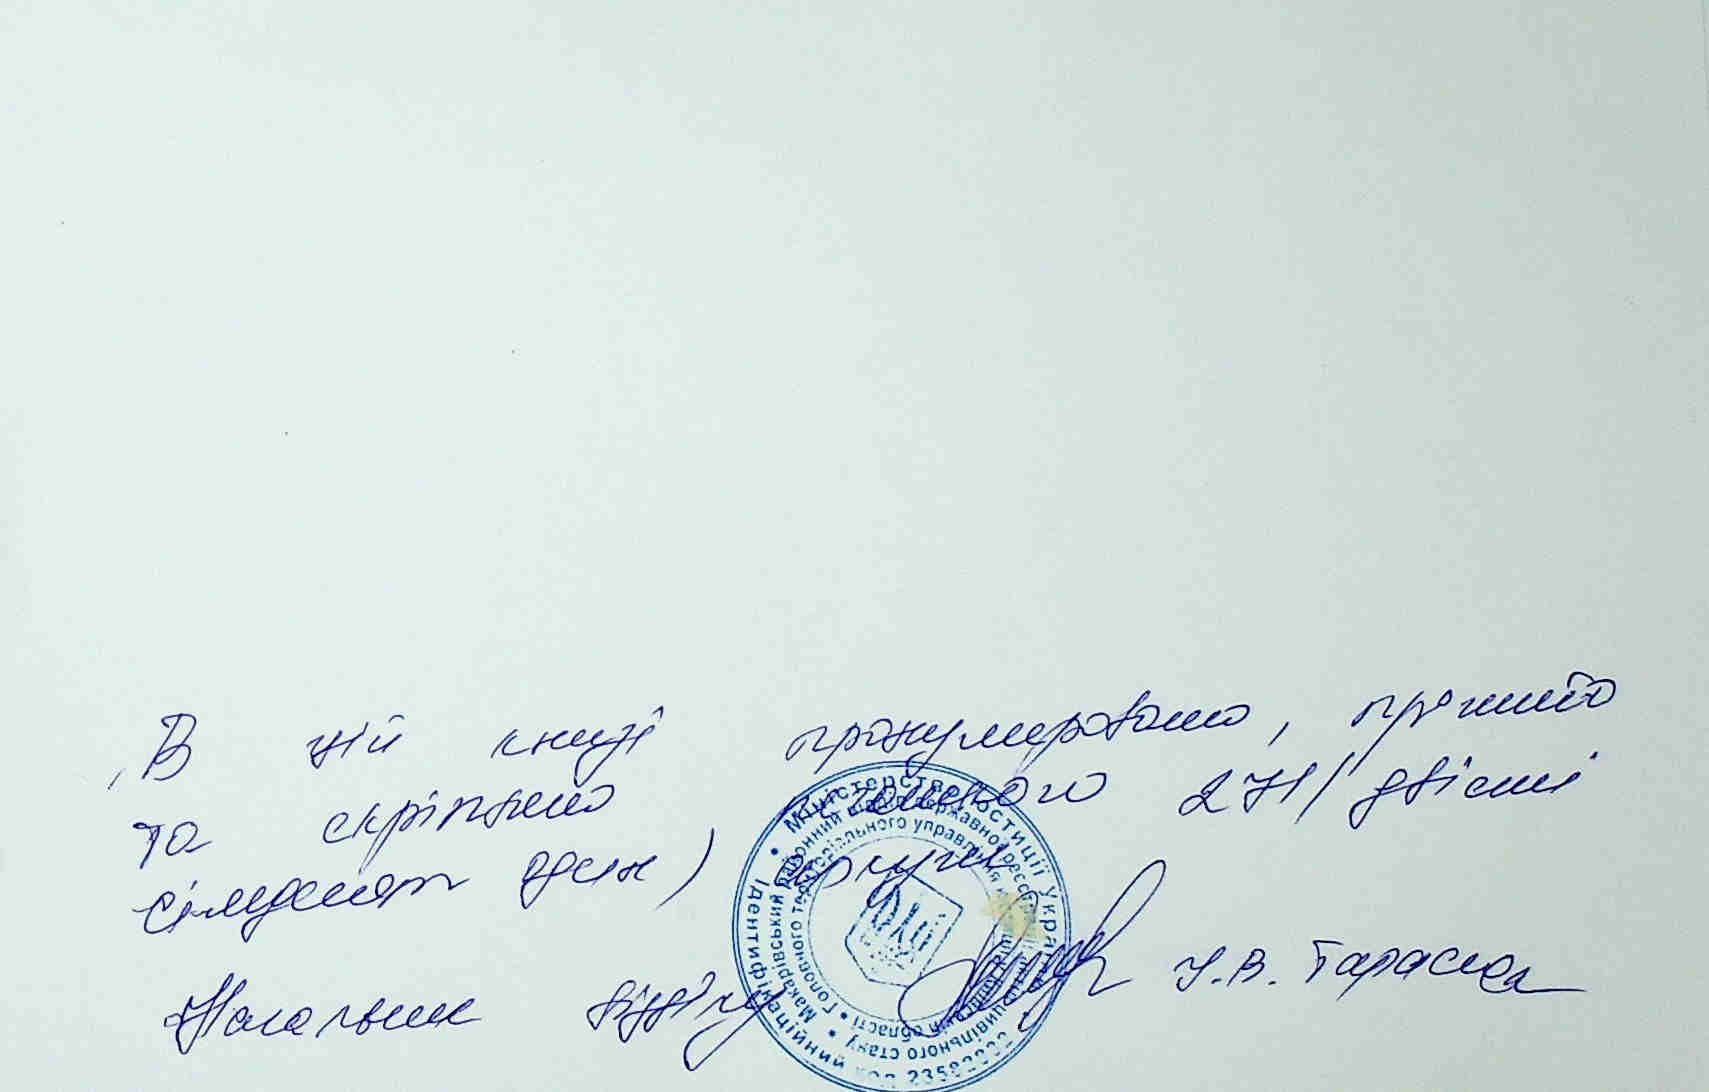 В цій книзі пронумеровано, прошито
та скріплено печаткою 271/двісті
сімдесят один) аркуш
Начальник відділу І.В. Тарасюк
Міністерство юстиції України
Ідентифікаційний код
Макарівський районний відділ державної реєстрації цивільного стану
Головного територіального управління юстиції області